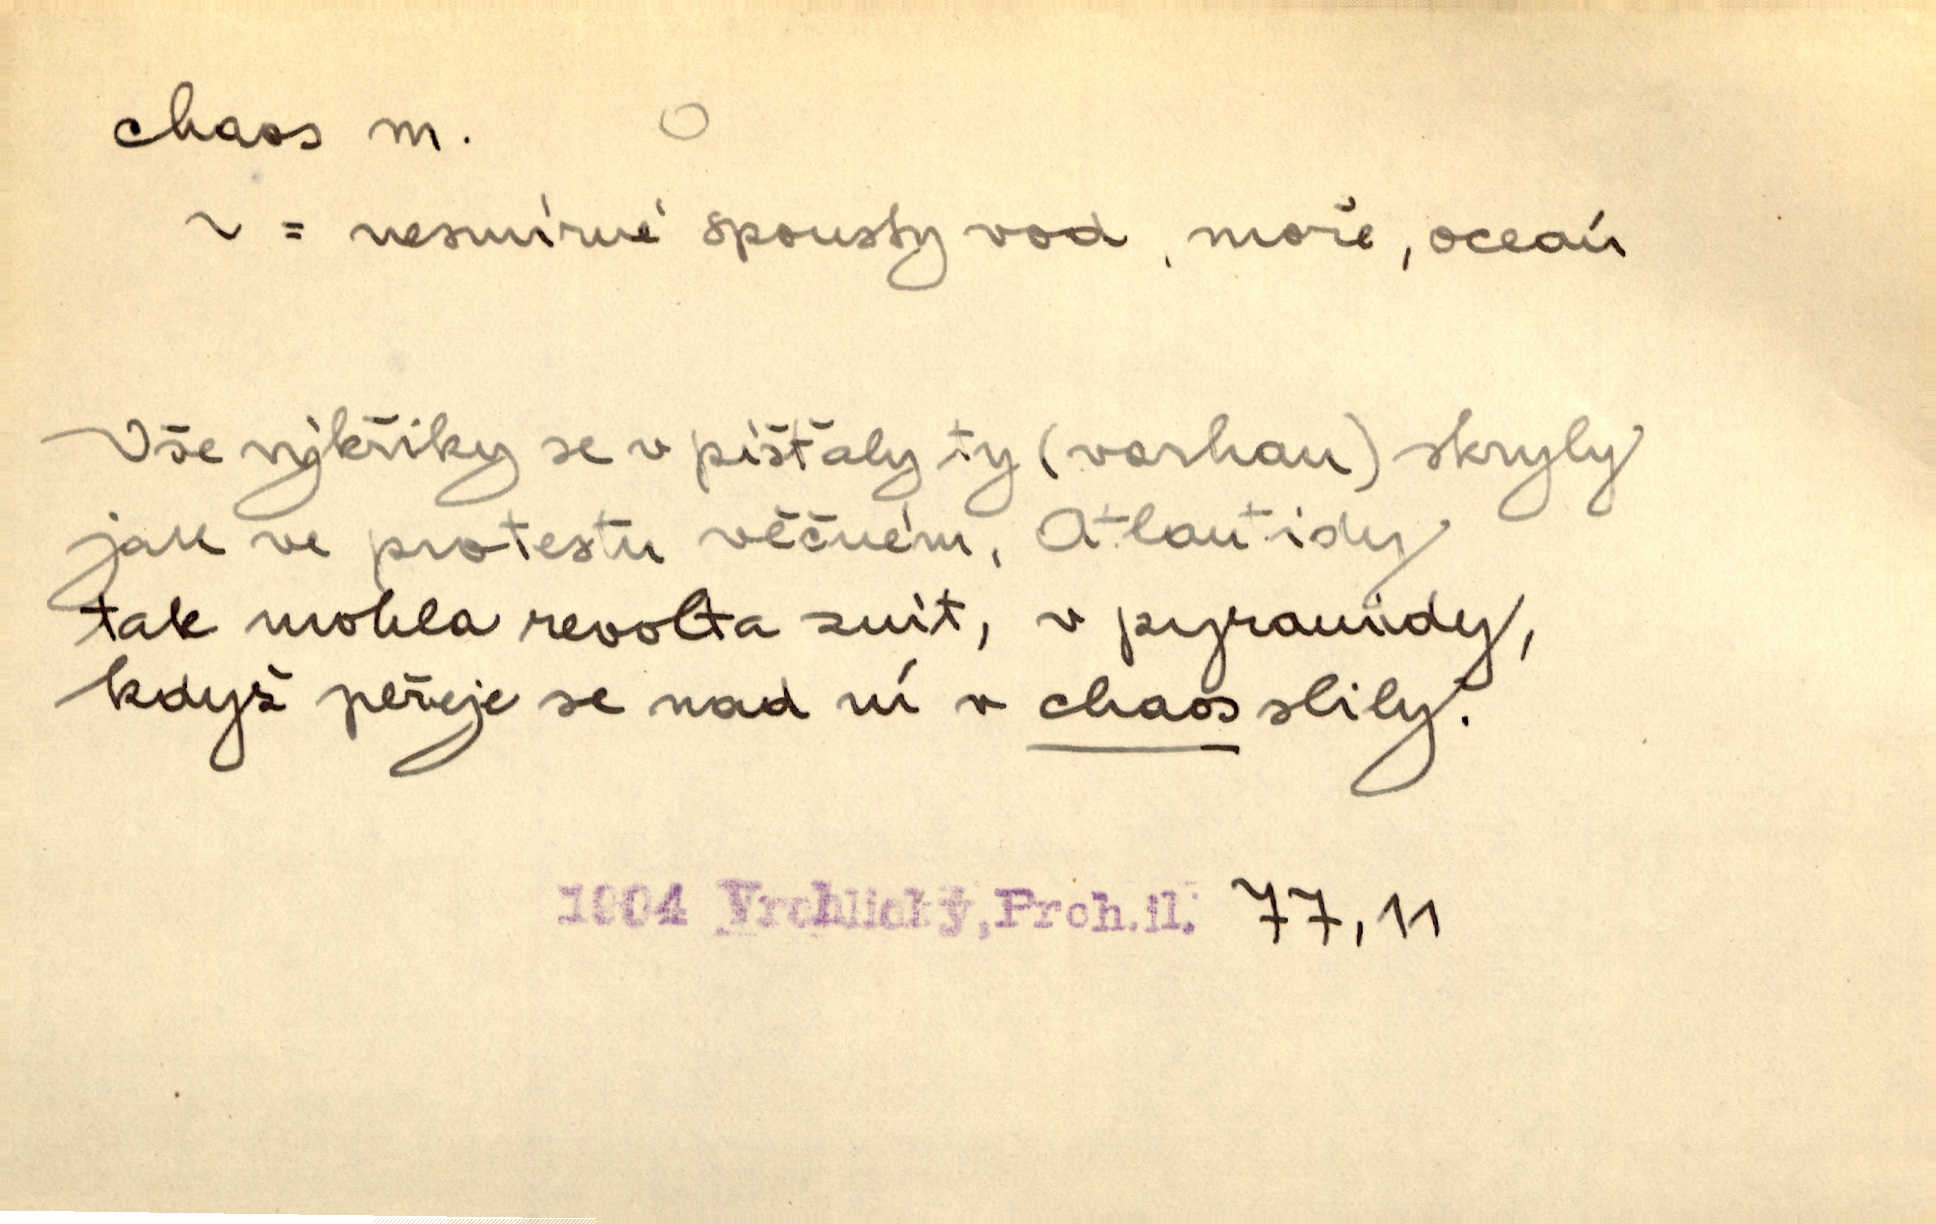 chaos m.
~ = nesmírné spousty vod, moře, oceán
Vše výkřiky se v píšťaly ty (varhan) skryly
jak ve protestu věčném, Atlantidy
tak mohla revolta znít, v pyramidy,
když peřeje se nad ní v chaos slily.
1904 Vrchlický, Proh. il. 77, 11